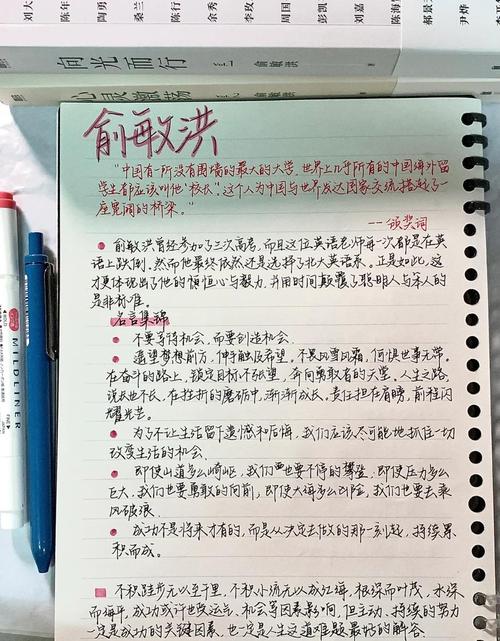 刘大
陈年
陶勇
桑兰
陈行
余秀
李玫
周国
彭凯
刘嘉
陈海
郝景
尹烨
向光而行
俞敏洪
心安激荡
俞敏洪
"中国有一所没有围墙的最大的大学,世界上几乎所有的中国海外留
学生都应该叫他'校长'。这个人为中国与世界发达国家交流,搭起了一
座宽阔的桥梁。"
--颁奖词
俞敏洪曾经参加了三次高考,而且这位英语老师每一次都是在英
语上跌倒。然而他最终依然还是选择了北大英语系。正是如此,这
才更体现出了他的恒心与毅力,并用时间颠覆了聪明人与笨人的
是非标准。
名言集锦
不要等待机会,而要创造机会。
遥望梦想前方,伸手触及希望,不畏风雪风霜,何惧世事无常。
在奋斗的路上,锁定目标不张望,奔向勇敢者的天堂。人生之路,
说长也不长,在挫折的磨砺中,渐渐成长。责任担在肩膀,前程闪
耀光芒。
为了不让生活留下遗憾和后悔,我们应该尽可能地抓住一切
改变生活的机会。
即使山道多么崎岖,我们也要不停的攀登,即使压力多么
巨大,我们也要勇敢的向前,即使大海多么凶险,我们也要去乘
风破浪。
成功不是将来才有的,而是从决定去做的那一刻起,持续累
积而成。
不积跬步无以至千里,不积小流无以成江海,根深而叶茂,水深
而海平,成功或许也受运气、机会等因素影响,但主动、持续的努力
一定是成功的关键因素,也一定是人生之道难题最好的解答。
MILDLINER